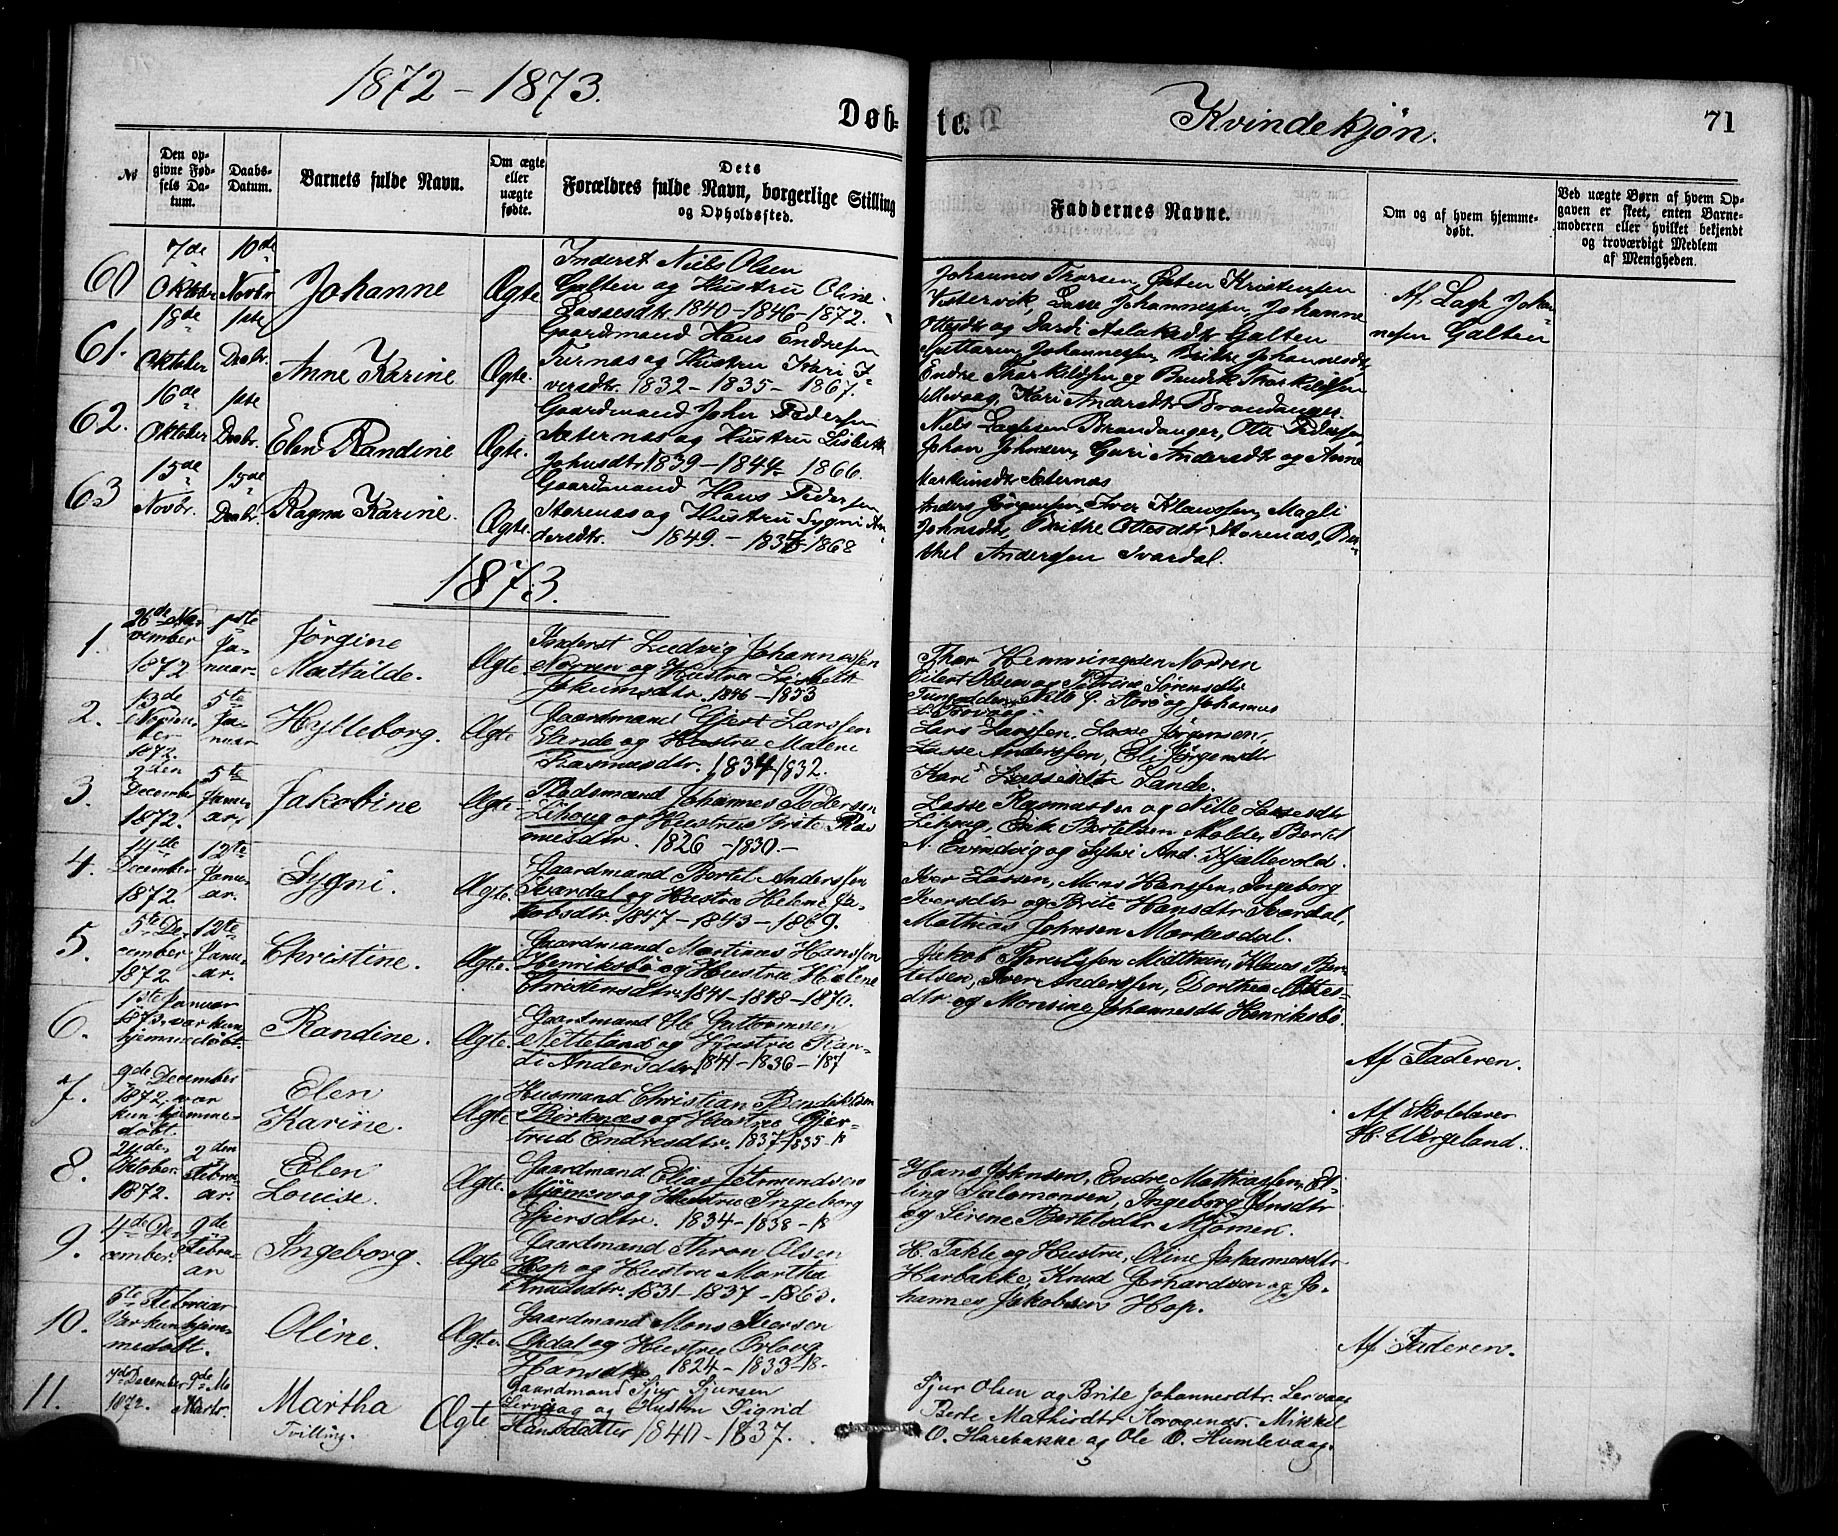 1872 - 1873.
Døb-
te.
Kvindekjøn.
71
No
Den opgivne Fødsels Datum.
Daabs-Datum.
Barnets fulde Navn.
Om ægte eller uægte fødte.
Dets
Forældres fulde Navn, borgerlige Stilling
og Opholdssted.
Faddernes Navne.
Om og af hvem hjemmedøbt.
Ved uægte Børn af hvem Opgaven er skeet, enten Barnemoderen eller hvilket bekjendt og troværdigt Medlem af Menigheden.
60
7de Oktober
10de Novbr.
Johanne
Ægte
Inderst Niels Olsen
Galten og Hustru Oline
Lassesdtr. 1840-1846-1872.
Johannes Thorsen, Østen Kristensen
Vestervik, Lasse Johannessen, Johanne
Ottesdtr og Dardi Aslaksdtr Galten
Af Johannesen Galten
61.
18de Oktober
1ste Decbr.
Anne Karine
Ægte.
Gaardmand Hans Endresen
og Hustru Kari I-
versdtr. 1832-1835-1867.
Guttorm Johannessen, Brithe Johannesdtr,
Endre Thorkildsen og Bendik Thorkildsen
Kari Andersdtr Brandanger.
62.
16de Oktober
1ste Decbr.
Elen Randine
Ægte.
Gaardmand John Pedersen
Sæternæs og Hustru Lisbeth
Johnsdtr 1839-1844-1866.
Niels Brandanger, Otte Pedersen,
Johan Johnsen, Guri Andersdtr og Anne
Sæternæs
63
15de Novbr.
15de Decbr.
Ragna Karine.
Ægte.
Gaardmand Hans Pedersen
Storenæs og Hustru Sygni An-
dersdtr. 1849.-1868
Anders Jørgensen, Iver Klaussen, Magli
Johnsdtr, Brithe Ottesdtr Storenæs, Ber-
thel Andersen Svardal.
1873.
1.
26de November 1872
1ste Januar
Jørgine
Mathilde.
Ægte
Inderst Ludvig Johannessen
Norren og Hustru Lisbeth
Jokumsdtr. 1846-1853
Thor Hemmingsen Norren
Eilert Olsen og Petrine Sørensdtr
2.
13de November 1872.
5te Januar
Hylleborg.
Ægte
Gaardmand Gjert Larssen
Lande og Hustru Malene
Rasmusdtr. 1834-1832.
Lars Larssen, Lasse Jørgensen,
Lasse Anderssen, Eli Jørgensdtr
Kari Lassesdtr Lande.
3.
2den December 1872.
5te Januar.
Jakobine
Ægte
Pladsmand Johannes Pedersen
Lihoug og Hustru Brite Ras-
musdtr. 1826-1830-
Lasse Rasmussen og Nille Lassesdtr
Lihoug, Erik Bertelsen Molde, Bertel
A. Evindvig og Sylvi And. Kjellevold.
4.
14de December 1872.
12te Januar.
Sygni.
Ægte.
Gaardmand Bertel Anderssen
Svardal og Hustru Helene Ja-
kobsdtr. 1847-1843-1869.
Iver Lassen, Mons Hanssen, Ingeborg
Iversdtr og Brite Hansdtr Svardal,
Mathias Johnsen Markesdal.
5.
5te December 1872
12te Januar.
Christine.
Ægte.
Gaardmand Martinus Hanssen
Henriksbø og Hustru Helene
Christensdtr. 1841-1848-1870.
Jakob Berntssen Midttun, Klaus Ber-
telsen, Iver Anderssen, Dorthea Ottes-
dtr og Monsine Johannesdtr Henriksbø.
6.
1ste Januar 1873, var kun hjemmedøbt.
Randine.
Ægte.
Gaardmand Ole Guttormsen
Netteland og Hustru Ran-
di Andersdtr. 1841-1836-187
Af Faderen.
7.
9de December 1872, var kun hjemmedøbt.
Elen
Karine.
Ægte
Husmand Christian Bendiktsen
Birknæs og Hustru Gjer-
trud Endresdtr. 1837-1835-18
Af Skolelærer
H. Wergeland.
8.
24de Oktober 1872.
2den Februar.
Elen
Louise.
Ægte.
Gaardmand Elias Jetmundsen
Mjømen og Hustru Ingeborg
Sjursdtr. 1834-1838-18
Hans Johnsen, Endre Mathiassen, El-
ling Salomonsen, Ingeborg Jensdtr
og Sirene Bertelsdtr Mjømen.
9.
4de December.
9de Februar
Ingeborg.
Ægte
Gaardmand Thron Olsen
Hop og Hustru Martha
Knudsdtr. 1831-1837-1863.
H. Takle og Hustru, Oline Johannesdtr
Harbakke, Knud Gerhardsen og Jo-
hannes Jakobsen Hop.
10.
6te Februar Var kun hjemmedøbt.
Oline.
Ægte
Gaardmand Mons Iversen
Opdal og Hustru
Hansdtr 1824-1833-18-
Af Faderen.
11.
7de December 1872.
9de Marts.
Martha
Tvilling.
Ægte
Gaardmand Sjur Sjursen
Lervaag og Hustru Sigrid
Hansdatter 1840-1837.
Sjur Olsen og Brite Johannesdtr. Lervaag
Berte Mathisdtr Kragenæs. Mikkel
O. Harebakke og Ole O. Humlevaag.